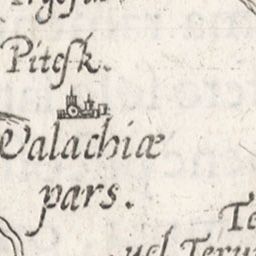 Piteſk.
Valachiæ
pars.
Te
vel Teru